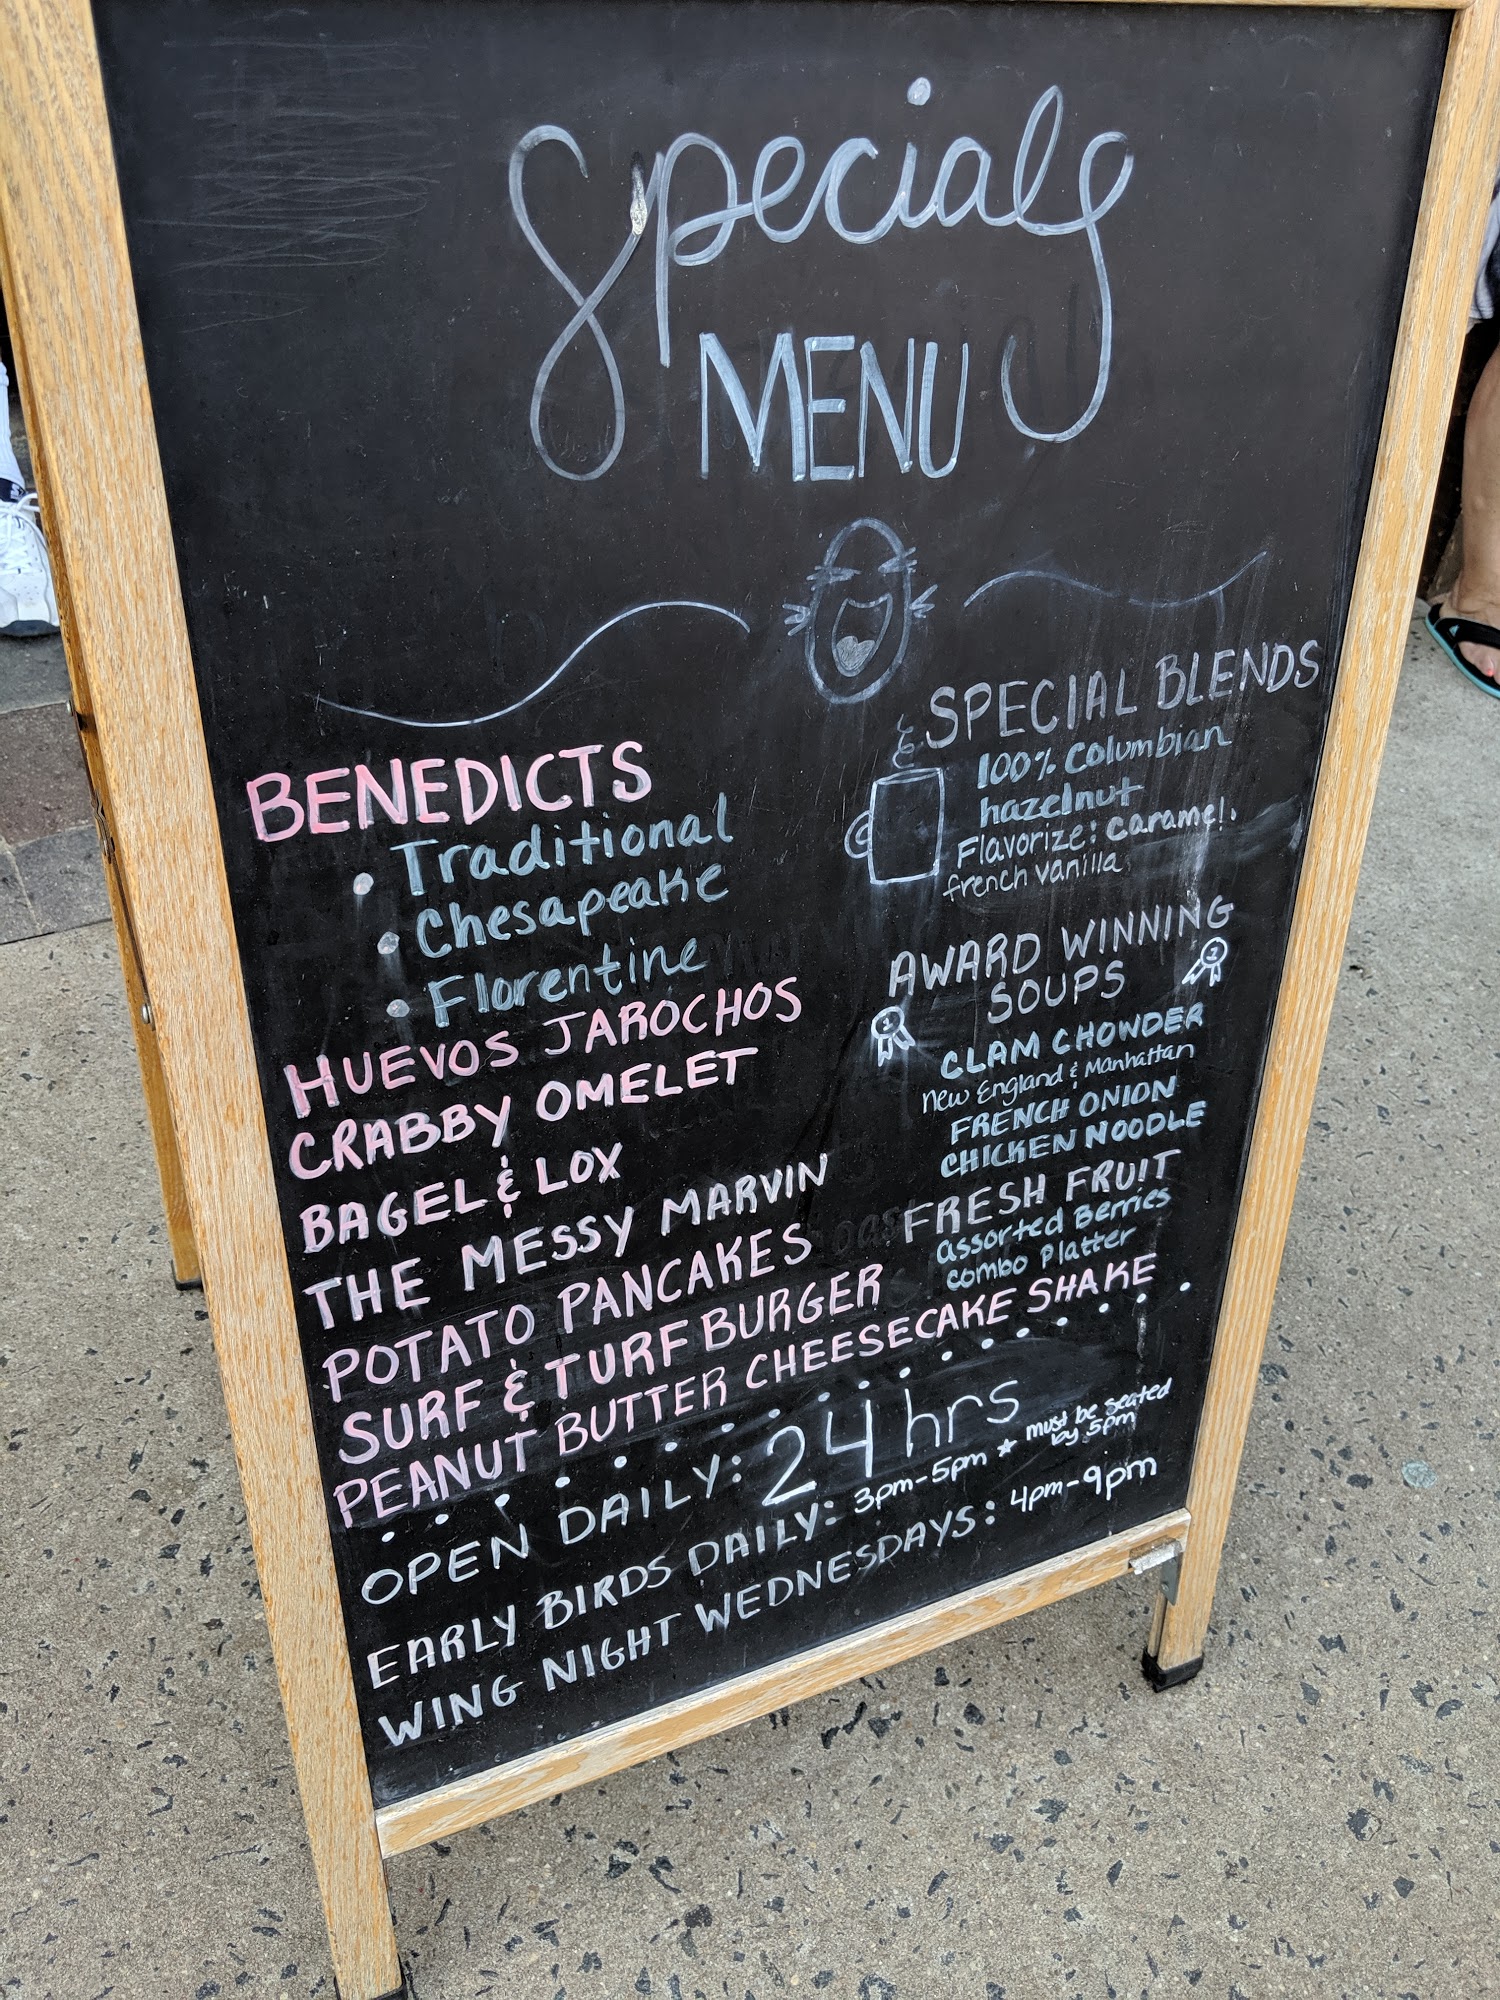 Specials
MENU
BENEDICTS
• Traditional
• Chesapeake
• Florentine
HUEVOS JAROCHOS
CRABBY OMELET
BAGEL & LOX
THE MESSY MARVIN
POTATO PANCAKES
SURF & TURF BURGER
PEANUT BUTTER CHEESECAKE SHAKE
SPECIAL BLENDS
100% Columbian
hazelnut
Flavorize: caramel,
french vanilla
AWARD WINNING
SOUPS
1
2
CLAM CHOWDER
New England & Manhattan
FRENCH ONION
CHICKEN NOODLE
FRESH FRUIT
assorted Berries
combo Platter
OPEN DAILY: 24 hrs
EARLY BIRDS DAILY: 3pm-5pm * must be seated
by 5pm
WING NIGHT WEDNESDAYS: 4pm-9pm